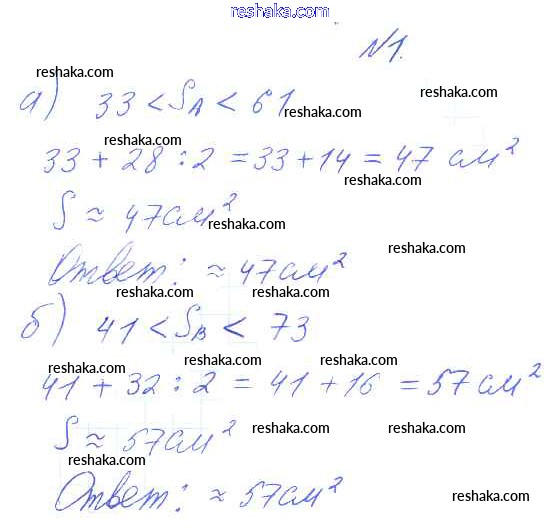 reshaka.com
№1.
reshaka.com
reshaka.com
а) 33 < S_A < 61
reshaka.com
reshaka.com
33 + 28 : 2 = 33 + 14 = 47 см²
reshaka.com
S ≈ 47 см²
reshaka.com
reshaka.com
Ответ: ≈ 47 см²
reshaka.com
reshaka.com
б) 41 < S_B < 73
reshaka.com
reshaka.com
reshaka.com
41 + 32 : 2 = 41 + 16 = 57 см²
S ≈ 57 см²
reshaka.com
reshaka.com
reshaka.com
Ответ: ≈ 57 см²
reshaka.com